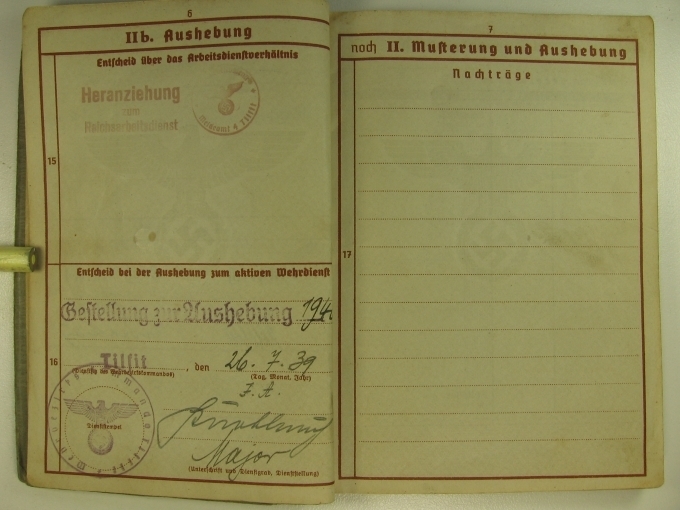 6
IIb. Aushebung
Entscheid über das Arbeitsdienstverhältnis
Heranziehung
zum
Reichsarbeitsdienst
15
Entscheid bei der Aushebung zum aktiven Wehrdienst
Gestellung zur Aushebung 194
16
Tilsit, den 26. 7. 39
(Tag, Monat, Jahr)
J. A.
Dienststempel
Major
(Unterschrift und Dienstgrad, Dienststellung)
7
noch II. Musterung und Aushebung
Nachträge
17